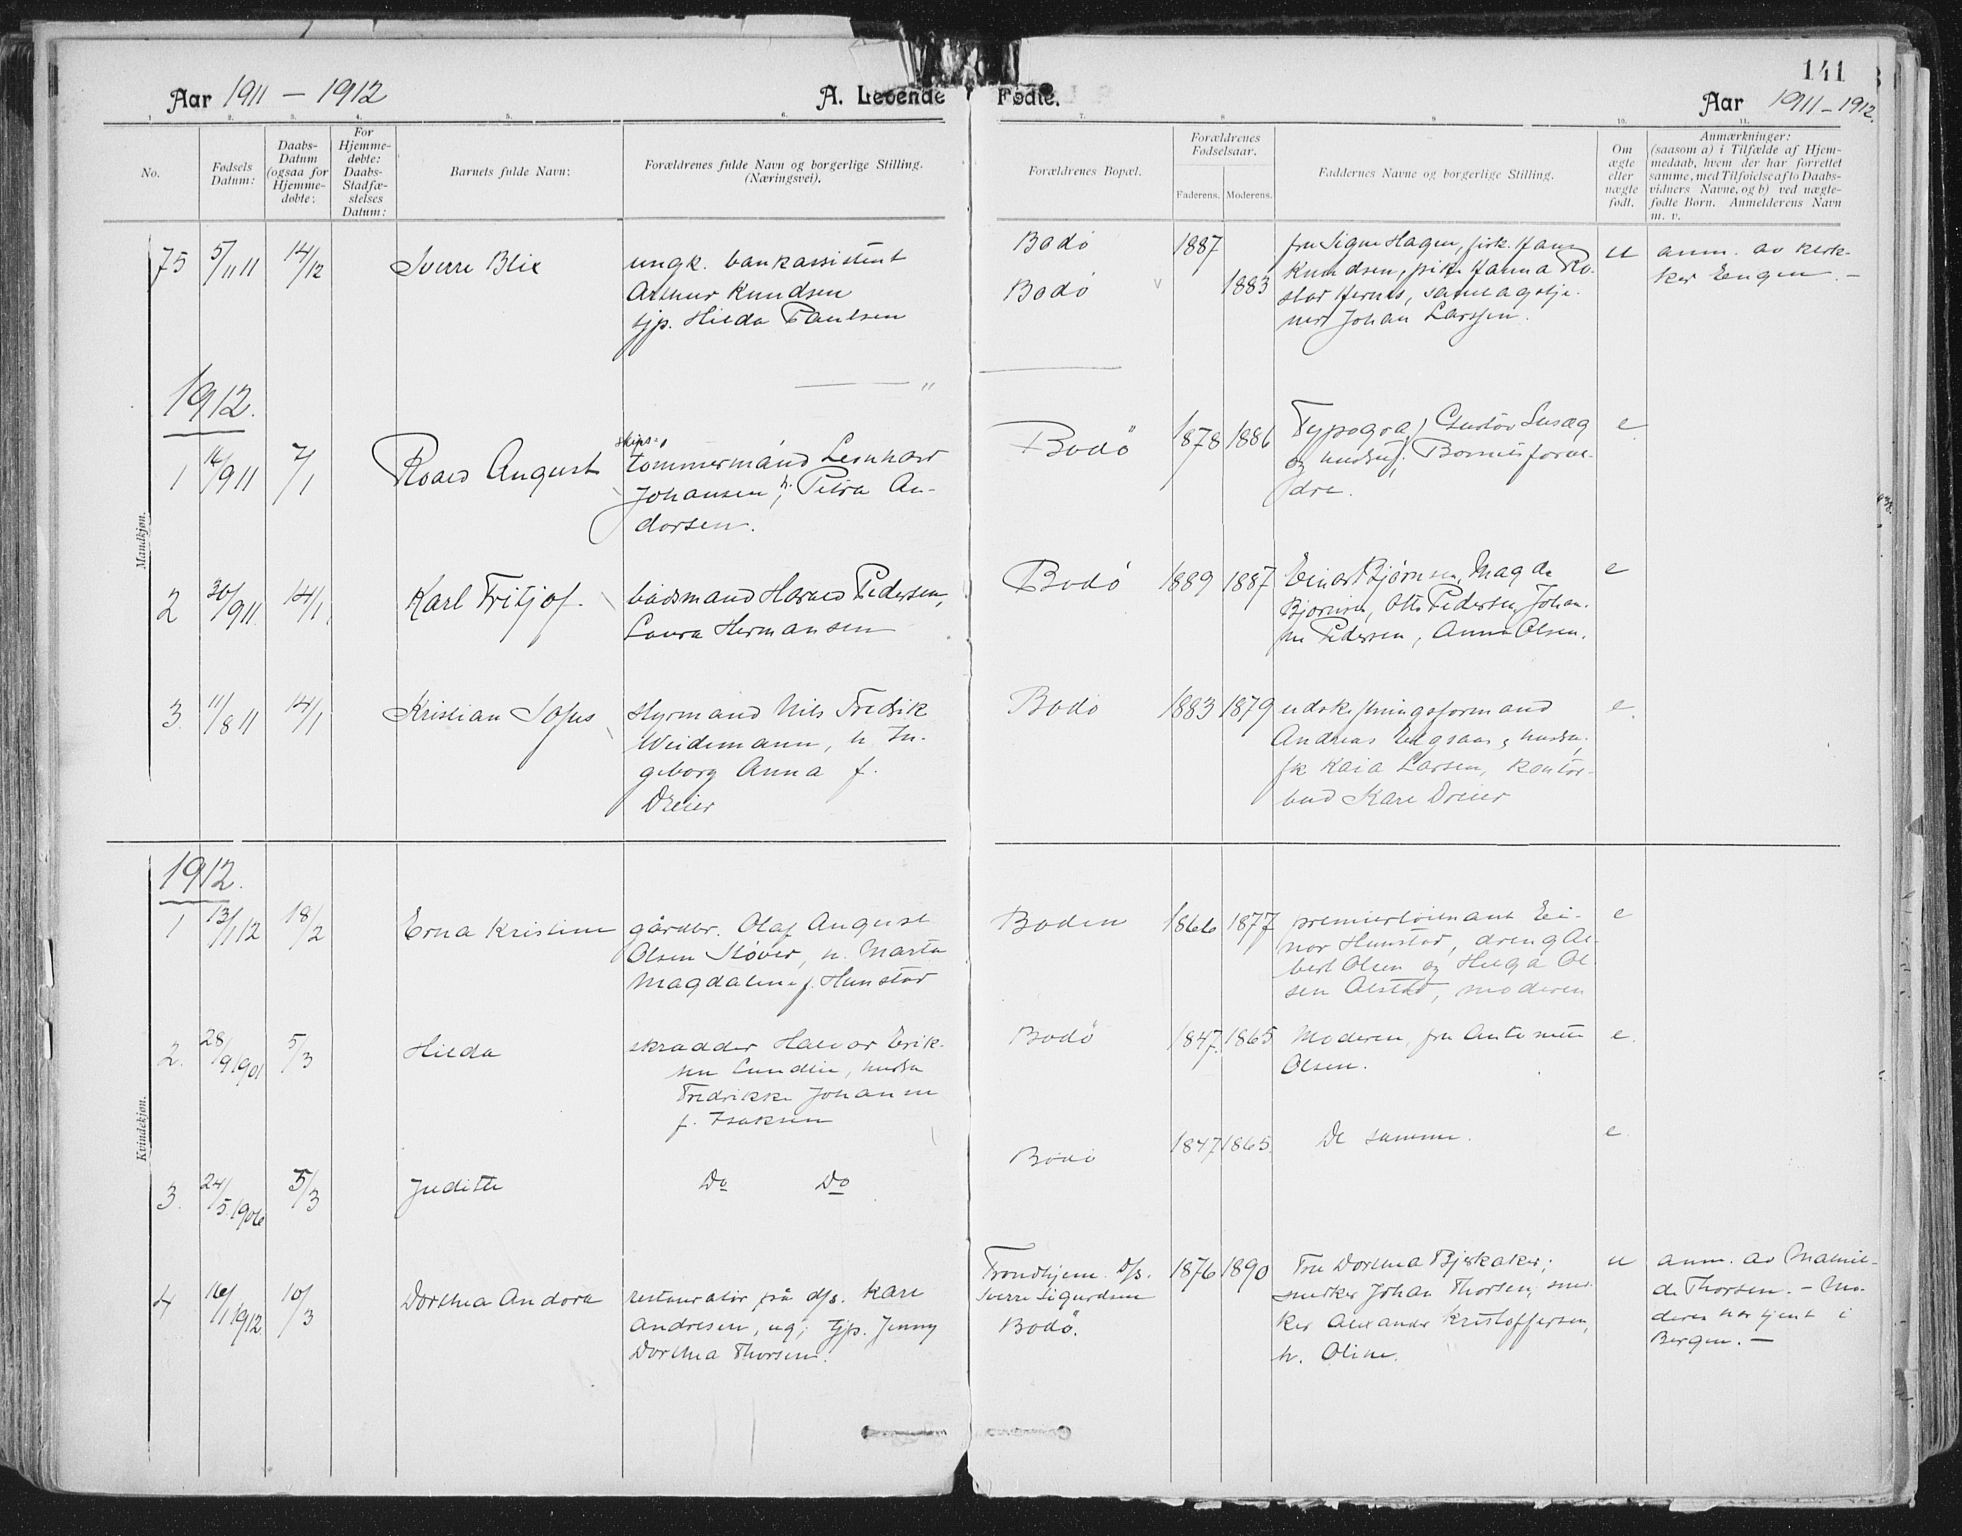 Aar 1911 – 1912
A. Levende Fødte.
141
Aar 1911 – 1912.
1. 2. 3. 4. 5. 6. 7. 8. 9. 10. 11.
No.
Fødsels Datum:
Daabs-Datum (ogsaa for Hjemme-døbte:
For Hjemme-døbte: Daabs-Stadfæ-stelses Datum:
Barnets fulde Navn:
Forældrenes fulde Navn og borgerlige Stilling. (Næringsvei).
Forældrenes Bopæl.
Forældrenes Fødselsaar.
Faderens. Moderens.
Faddernes Navne og borgerlige Stilling.
Om ægte eller uægte født.
Anmærkninger:
(saasom a) i Tilfælde af Hjem-
medaab, hvem der har forrettet
samme, med Tilføielse af to Daabs-
vidners Navne, og b) ved uægte-
fødte Børn. Anmelderens Navn
m. v.
75 5/11 11 14/12 Sverre Blix
ungk. bankassistent
Arthur Knudsen
tjp. Hilda Paulsen
Bodø
Bodø
1887
1883
fru Signe Hagen, pik. Hans
Knudsen, pike Hanna Ro-
stad Hernes, samlagstje-
ner Johan Larssen.
u
anm. av kirk-
ker Engen. –
1912.
Mandkjøn.
1 16/9 11 7/1 Roald August
skips-
tømmermand Leonhard
Johansen, h. Petra An-
dorsen.
Bodö 1878 1886
Typograf Gustav Lusæg
og hustru, Barnets foræl-
dre.
e
2 30/9 11. 14/1 Karl Fritjof.
baadsmand Harald Pedersen,
Laura Hermansen
Bodö 1889 1887
Einar Bjørnsen, Magda
Bjørnsen, Otto Pedersen, Johan-
ne Pedersen, Anna Olsen.
e
3. 11/8 11 14/1 Kristian Sofus
styrmand Nils Fredrik
Weidemann, h. In-
geborg Anna f.
Dreier
Bodø 1883 1879
udskiftningsformand
Andreas , hustru,
frk Kaia Larsen, kontor-
bud Karl Dreier
e.
1912.
Kvindekjøn.
1 13/1 12 18/2 Erna Kristine
gårdbr. Olaf August
Olsen Støver, h. Marta
Magdalene f. Hunstad
Bodin 1866 1877
premierløitnant Ei-
nar Hunstad, dreng Al-
bert Olsen og Helga Ol-
sen Alstad, moderen
e
2. 28/9 1901 5/3 Hilda
skrædder Halvor Erik-
sen Lundli, hustru
Fredrikke Johanne
f. Isaksen
Bodö 1847. 1865
Moderen, fru Antonette
Olsen.
e.
3. 24/5. 1906 5/3 Judith
Do Do
Bodö 1847 1865.
De samme.
e.
4 16/1 1912. 10/3 Dorthea Andora
restauratør på d/s. Karl
Andresen, ug; tjp. Jenny
Dorthea Thorsen.
Trondhjem. D/s.
Sverre Sigurdssøn
Bodö.
1876 1890
Fru Dorthea Bjerkaker;
snekker Johan Thorsen, snek-
ker Alexander Kristoffersen,
h. Oline.
u
anm. av Mathil-
de Thorsen. – Mo-
deren har tjent i
Bergen. –